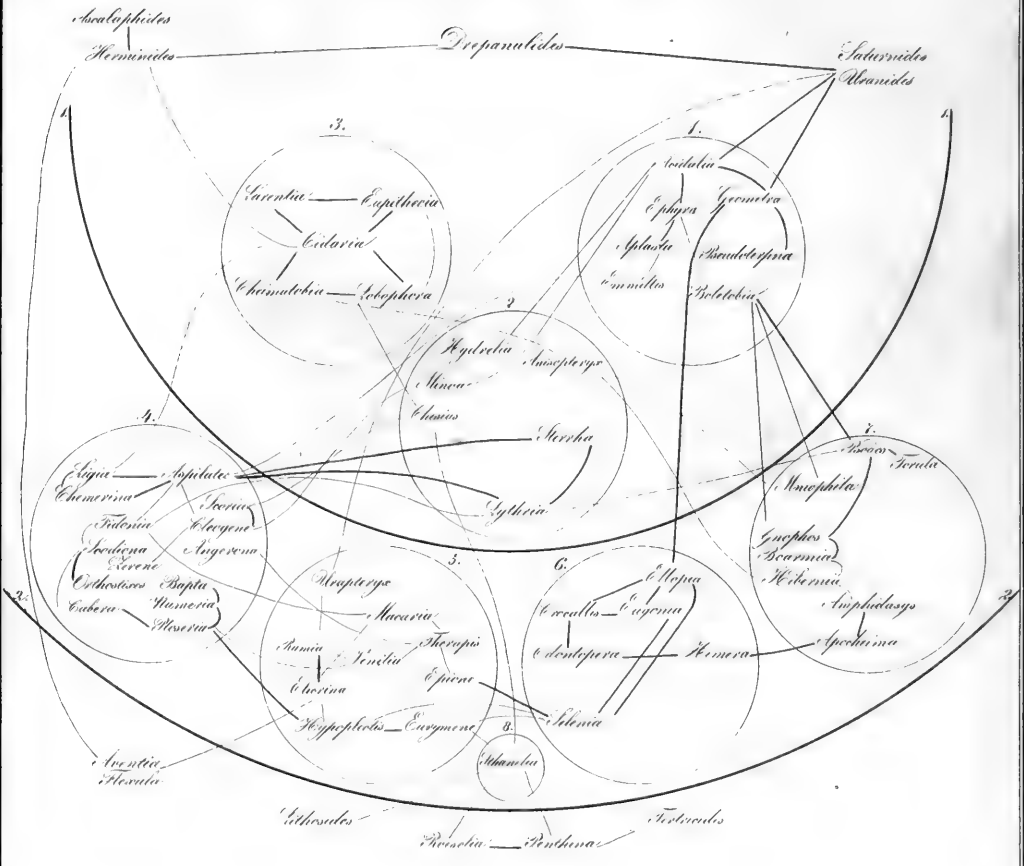 Ascalaphides
Herminides
Drepanulides
Saturnides
Uranides
1.
1.
3.
Larentia
Eupithecia
Cidaria
Cheimatobia
Lobophora
1.
Acidalia
Ephyra
Geometra
Aplasta
Pseudoterpna
Emmiltis
Boletobia
2
Hydrelia
Anisopteryx
Minoa
Chesias
Sterrha
Lythria
4.
Ligia
Aspilates
Chemerina
Scoria
Fidonia
Cleogene
Scodiona
Angerona
Zerene
Orthostixis
Bapta
Cabera
Numeria
Ploseria
7.
Psodos
Torula
Mniophila
Gnophos
Boarmia
Hibernia
Amphidasys
Apocheima
5.
Urapteryx
Macaria
Rumia
Therapis
Venilia
Epione
Chorina
Hypoplectis
Eurymene
6.
Ellopia
Crocallis
Eugonia
Odontopera
Himera
Selenia
8.
2.
2.
Aventia
Flexula
Lithosides
Tortricides
Roeselia
Penthina